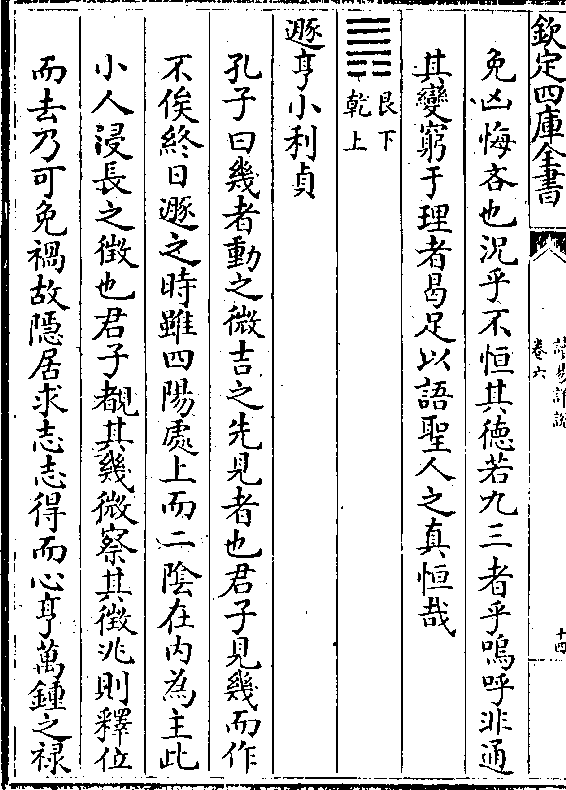 欽定四庫全書
讀易詳說
卷六
十四
免凶悔吝也況乎不恒其德若九三者乎嗚呼非通
其變窮于理者曷足以語聖人之真恒哉
艮下
乾上
遯亨小利貞
孔子曰幾者動之微吉之先見者也君子見幾而作
不俟終日遯之時雖四陽處上而二陰在内為主此
小人浸長之徵也君子覩其幾微察其徵兆則釋位
而去乃可免禍故隱居求志志得而心亨萬鍾之禄